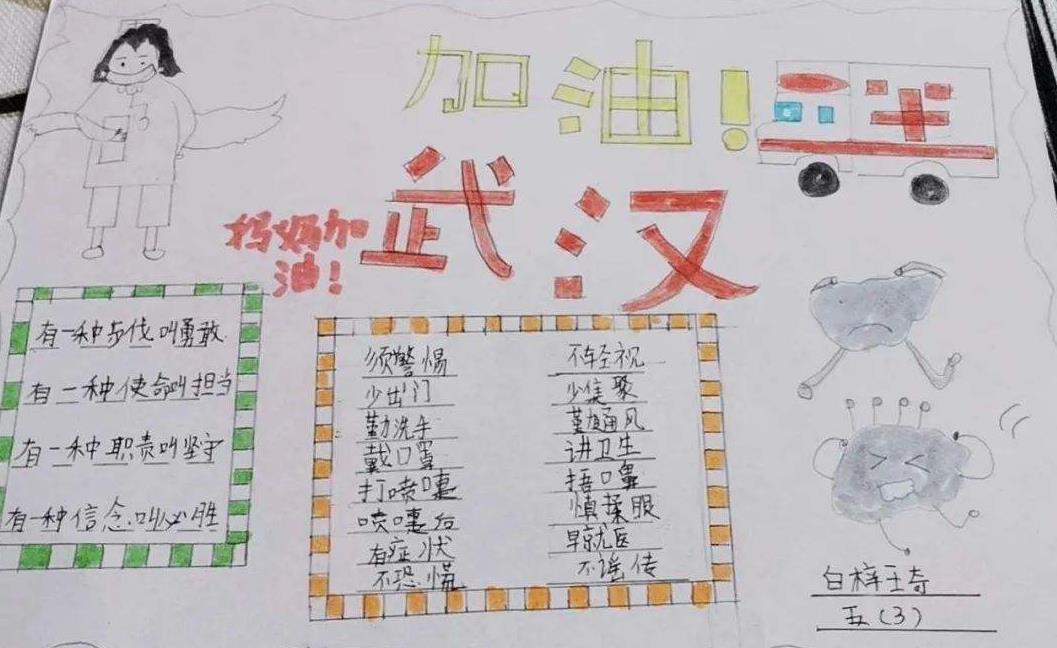 加油！
武汉
妈妈加
油！
有一种步伐叫勇敢
有一种使命叫担当
有一种职责叫坚守
有一种信念叫必胜
须警惕 不轻视
少出门 少集聚
勤洗手 勤通风
戴口罩 讲卫生
打喷嚏 捂口鼻
喷嚏后 慎揉服
有症状 早就医
不恐慌 不谣传
白梓琦
五（3）